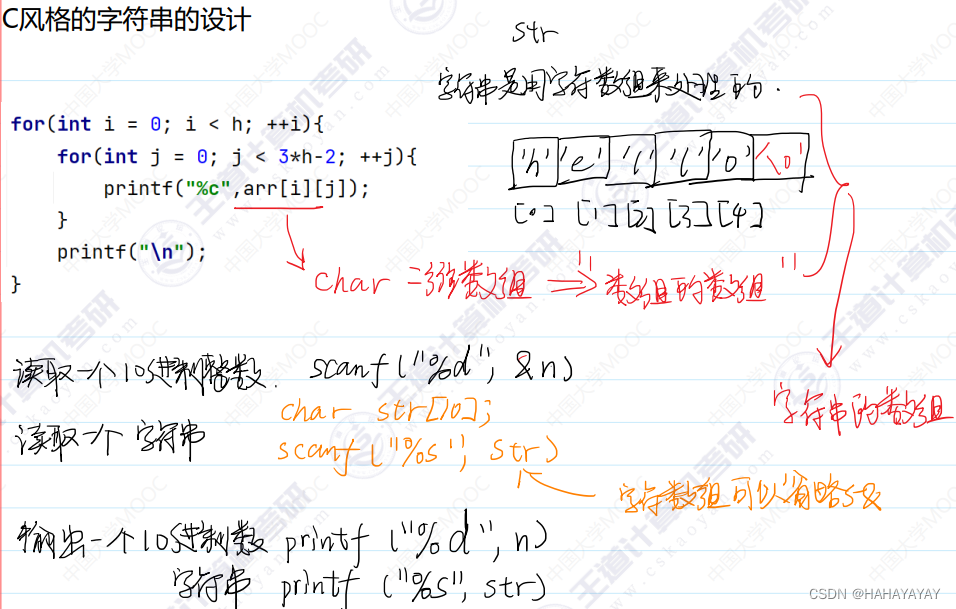 C风格的字符串的设计
str
字符串是用字符数组来处理的.
for(int i = 0; i < h; ++i){
for(int j = 0; j < 3*h-2; ++j){
printf("%c",arr[i][j]);
}
printf("\n");
}
'h' 'e' 'l' 'l' 'o' '\0'
[0] [1] [2] [3] [4]
char 二维数组 => "数组的数组"
字符串的数组
读取一个10进制整数. scanf("%d", &n)
char str[10];
读取一个字符串
scanf("%s", str)
字符数组可以省略&
输出一个10进制数 printf("%d", n)
字符串 printf("%s", str)
CSDN @HAHAYAYAY